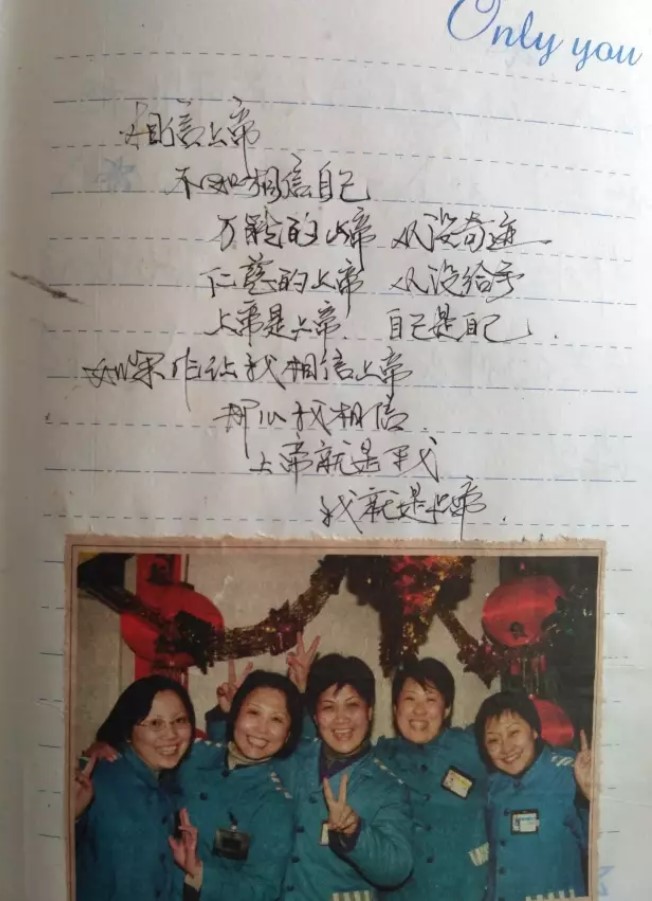 Only you
相信上帝
不如相信自己
万能的上帝 从没奇迹
仁慈的上帝 从没给予
上帝是上帝. 自己是自己.
如果非让我相信上帝
那么我相信.
上帝就是我
我就是上帝.